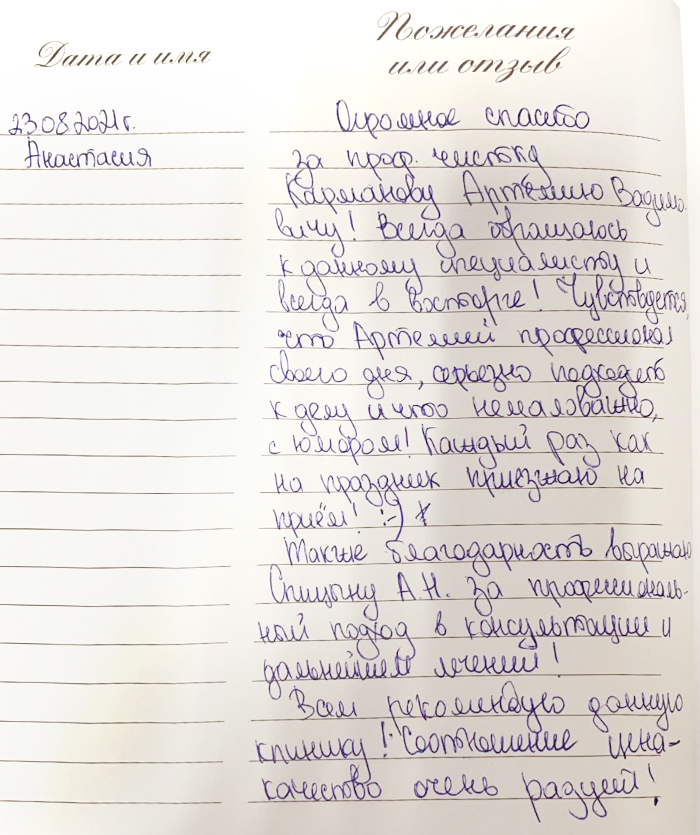 Дата и имя
Пожелания
или отзыв
23.08.2021г.
Анастасия
Огромное спасибо
за проф. чистку
Карманову Артемию Вадимо-
вичу! Всегда обращаюсь
к данному специалисту и
всегда в восторге! Чувствуется,
что Артемий профессионал
своего дня, серьезно подходит
к делу и что немаловажно,
с юмором! Каждый раз как
на праздник приезжаю на
приём! :-) *
Также благодарность выражаю
Спицыну А.Н. за профессиональ-
ный подход в консультации и
дальнейшем лечении!
Всем рекомендую данную
клинику! Соотношение цена-
качество очень радует!